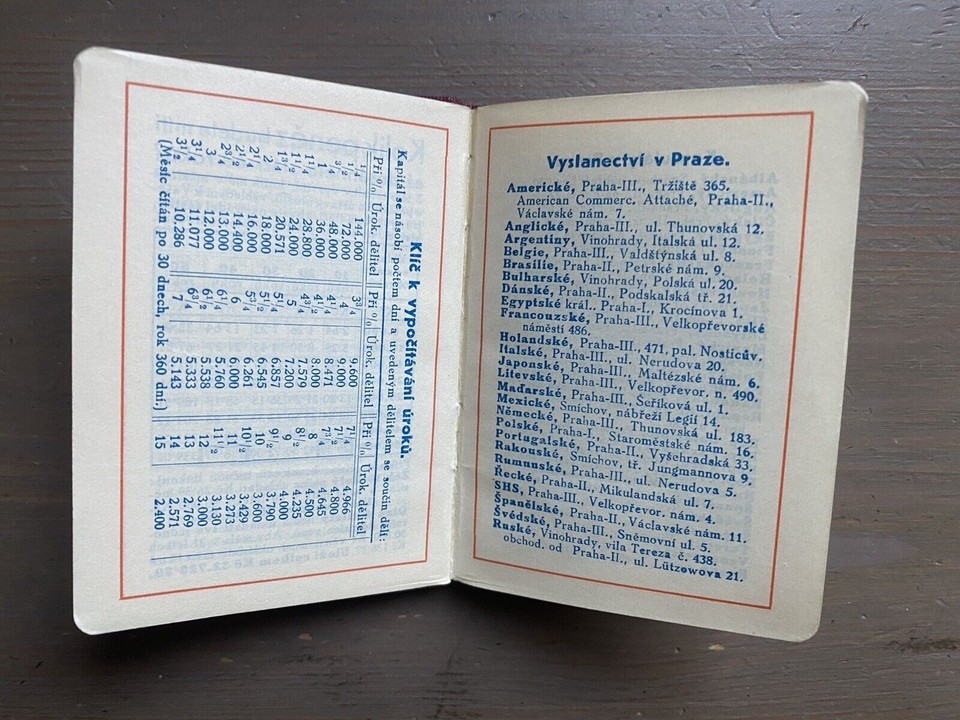 Klíč k vypočítávání úroků.
Kapitál se násobí počtem dní a uvedeným dělitelem se součin dělí:
Při % Úrok. dělitel Při % Úrok. dělitel Při % Úrok. dělitel
1/4 144.000 3 3/4 9.600 7 1/4 4.966
1/2 72.000 4 9.000 7 1/2 4.800
3/4 48.000 4 1/4 8.471 7 3/4 4.645
1 36.000 4 1/2 8.000 8 4.500
1 1/4 28.800 4 3/4 7.579 8 1/2 4.235
1 1/2 24.000 5 7.200 9 4.000
1 3/4 20.571 5 1/4 6.857 9 1/2 3.790
2 18.000 5 1/2 6.545 10 3.600
2 1/4 16.000 5 3/4 6.261 10 1/2 3.429
2 1/2 14.400 6 6.000 11 3.273
2 3/4 13.000 6 1/4 5.760 11 1/2 3.130
3 12.000 6 1/2 5.538 12 3.000
3 1/4 11.077 6 3/4 5.333 13 2.769
3 1/2 10.286 7 5.143 14 2.571
(Měsíc čítán po 30 dnech, rok 360 dní.) 15 2.400
Vyslanectví v Praze.
Americké, Praha-III., Tržiště 365.
American Commerc. Attaché, Praha-II.,
Václavské nám. 7.
Anglické, Praha-III., ul. Thunovská 12.
Argentiny, Vinohrady, Italská ul. 12.
Belgie, Praha-III., Valdštýnská ul. 8.
Brasilie, Praha-II., Petrské nám. 9.
Bulharské, Vinohrady, Polská ul. 20.
Dánské, Praha-II., Podskalská tř. 21.
Egyptské král., Praha-I., Krocínova 1.
Francouzské, Praha-III., Velkopřevorské
náměstí 486.
Holandské, Praha-III., 471, pal. Nosticův.
Italské, Praha-III., ul. Nerudova 20.
Japonské, Praha-III., Maltézské nám. 6.
Litevské, Praha-III., Velkopřevor. n. 490.
Maďarské, Praha-III., Šeříková ul. 1.
Mexické, Smíchov, nábřeží Legií 14.
Německé, Praha-III., Thunovská ul. 183.
Polské, Praha-I., Staroměstské nám. 16.
Portugalské, Praha-II., Vyšehradská 33.
Rakouské, Smíchov, tř. Jungmannova 9.
Rumunské, Praha-III., ul. Nerudova 5.
Řecké, Praha-II., Mikulandská ul. 7.
SHS, Praha-III., Velkopřevor. nám. 4.
Španělské, Praha-II., Václavské nám. 11.
Švédské, Praha-III., Sněmovní ul. 5.
Ruské, Vinohrady, vila Tereza č. 438.
obchod. od Praha-II., ul. Lützowova 21.